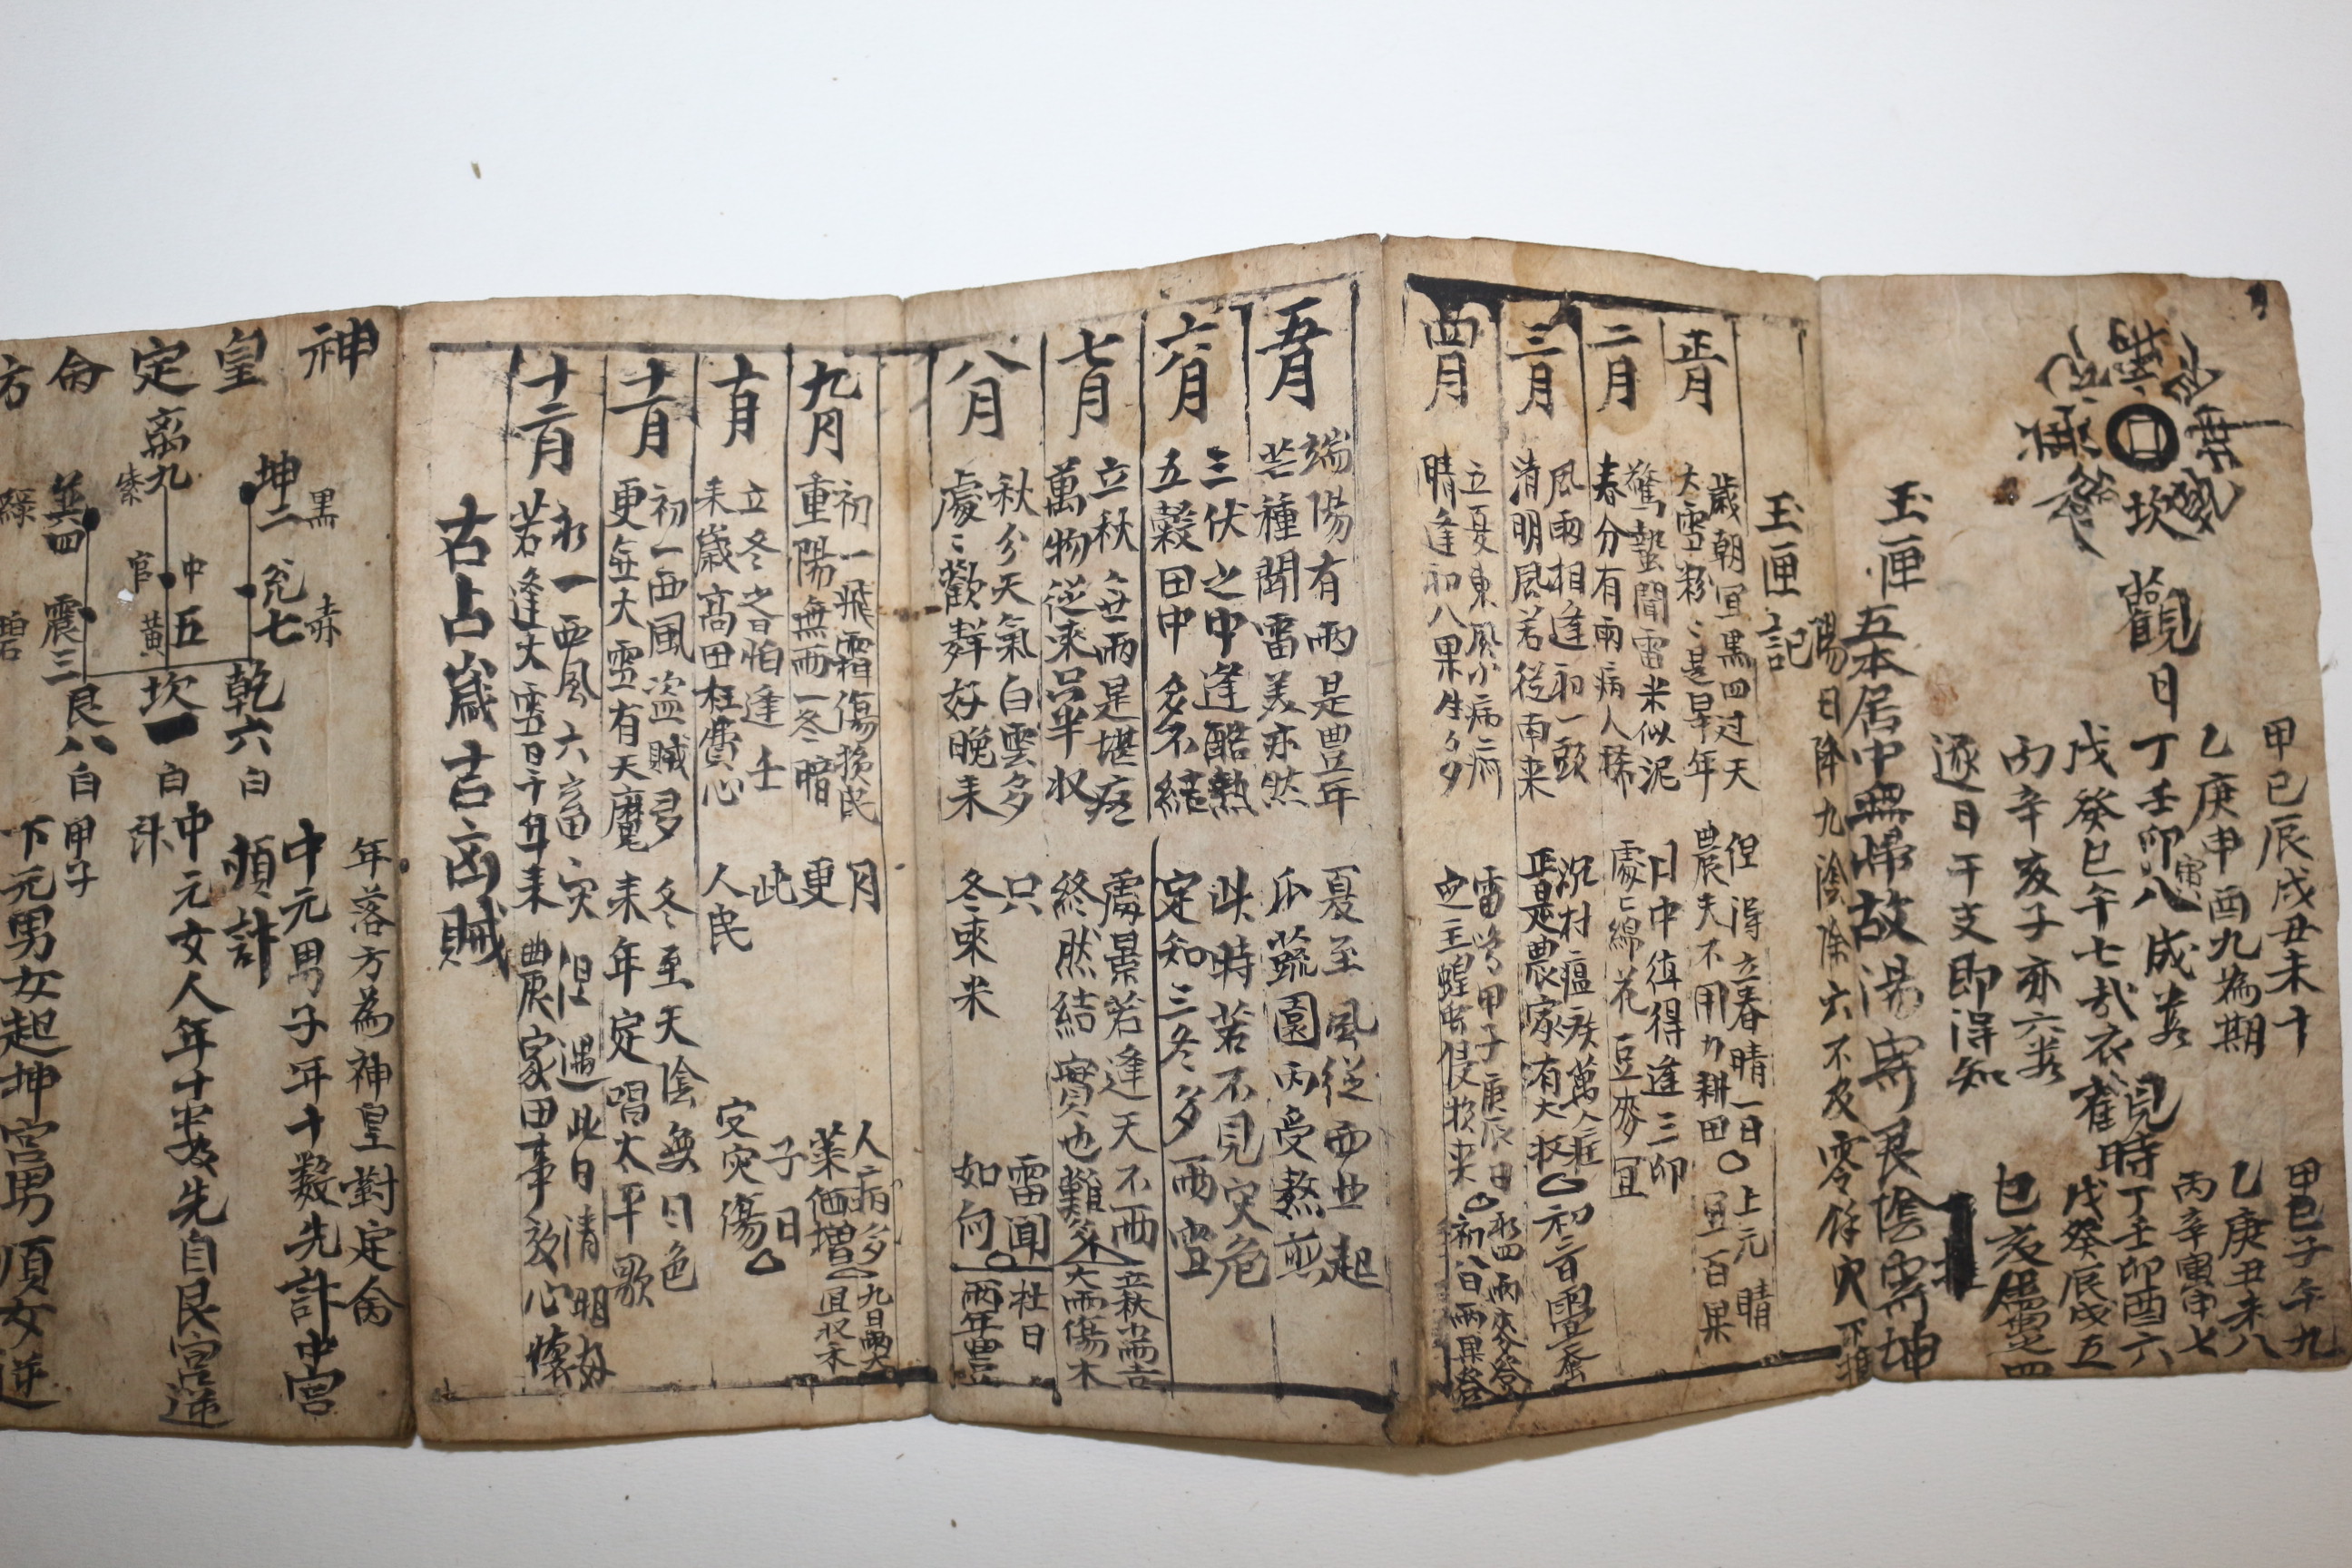 觀日
甲己辰戌丑未十
乙庚申酉九為期
丁壬寅卯八成若
戊癸巳午七
丙辛亥子亦六若
逐日干支即得知
觀時
甲己子午九
乙庚丑未八
丙辛寅申七
丁壬卯酉六
戊癸辰戌五
巳亥屬之四
玉匣
五本居中無歸故陽寄艮陰寄坤
陽日降九陰除六不及零餘灾
玉匣記
正月
歲朝宜黑四过天
大雪紛〻是旱年
但得立春晴一日
農夫不用力耕田
上元晴
宜百果
二月
驚蟄聞雷米似泥
春分有雨病人稀
月中值得逢三卯
處〻綿花豆麥宜
三月
風雨相逢初一頭
沉村瘟疾萬人
清明風若從南來
正是農家有大收
四月
立夏東風少病痾
晴逢初八果生多
雷鳴甲子庚辰日
定主蝗虫侵損來
初八日雨果登
五月
端陽有雨是豊年
芒種聞雷美亦然
夏至風從西北起
瓜蔬園內受熬煎
六月
三伏之中逢酷熱
五穀田中多不結
此時若不見灾危
定知三冬多雨雪
七月
立秋無雨是堪
萬物從來只半收
處暑若逢天不雨
終然結實也難多
立秋小雨吉
大雨傷木
八月
秋分天氣白雲多
處〻歡聲好晚禾
只 雷聞
冬來米 如何
社日
雨年豊
九月
初一飛霜傷損民
重陽無雨一冬晴
月 人病多
更 菜価增
九日雨大
宜收禾
十月
立冬之日怕逢壬
來歲高田枉費心
此 子日
人民 灾傷
十一月
初一西風盜賊多
更無大雪有天魔
冬至天陰無日色
來年定唱太平歌
十二月
初一西風六畜灾
若逢大雪旱年來
但遇此日清明好
農家田事放心懷
古占歲吉凶賊
神皇定命方
離九 紫
坤二 黑
兌七 赤
乾六 白
中官五 黃
坎一 白
巽四 綠
震三 碧
艮八 白
年落方為神皇對定命
中元男子年十數先計中宮
順計
中元女人年十先自艮宮逆
計
甲子
下元男女起坤宮男順女逆